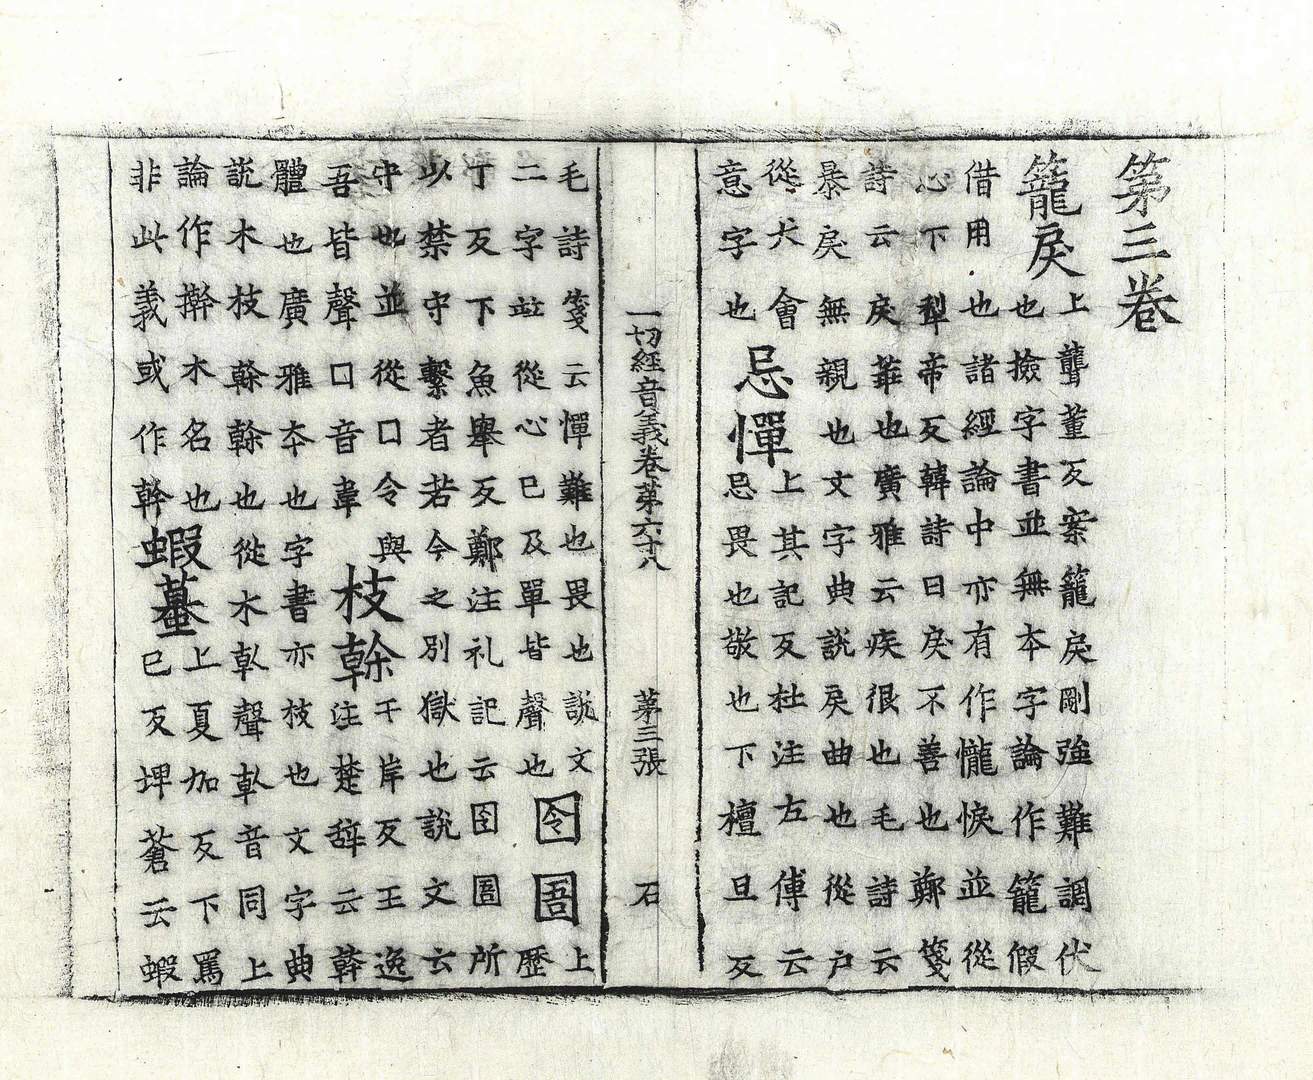 第三卷
籠戾上聾董反案籠戾剛強難調伏
也撿字書並無本字論作籠假
借用也諸經論中亦有作𢤱悷並從
心下犁帝反韓詩曰戾不善也鄭箋
詩云戾乖也廣雅云疾很也毛詩云
暴戾無親也文字典說戾曲也從户
從犬會
意字也
忌憚
上其記反杜注左傳云
忌畏也敬也下檀旦反
一切經音義卷苐六十八 苐三張 石
毛詩箋云憚難也畏也說文
二字並從心己及單皆聲也
囹圄
上
歷
丁反下魚舉反鄭注礼記云囹圄所
以禁守繫者若今之別獄也說文云
守也並從口令與
吾皆聲口音韋
枝榦
干岸反王逸
注楚辞云榦
體也廣雅夲也字書亦枝也文字典
說木枝榦榦也從木倝聲倝音同上
論作擀木名也
非此義或作幹
蝦蟇
上夏加反下罵
巴反埤蒼云蝦